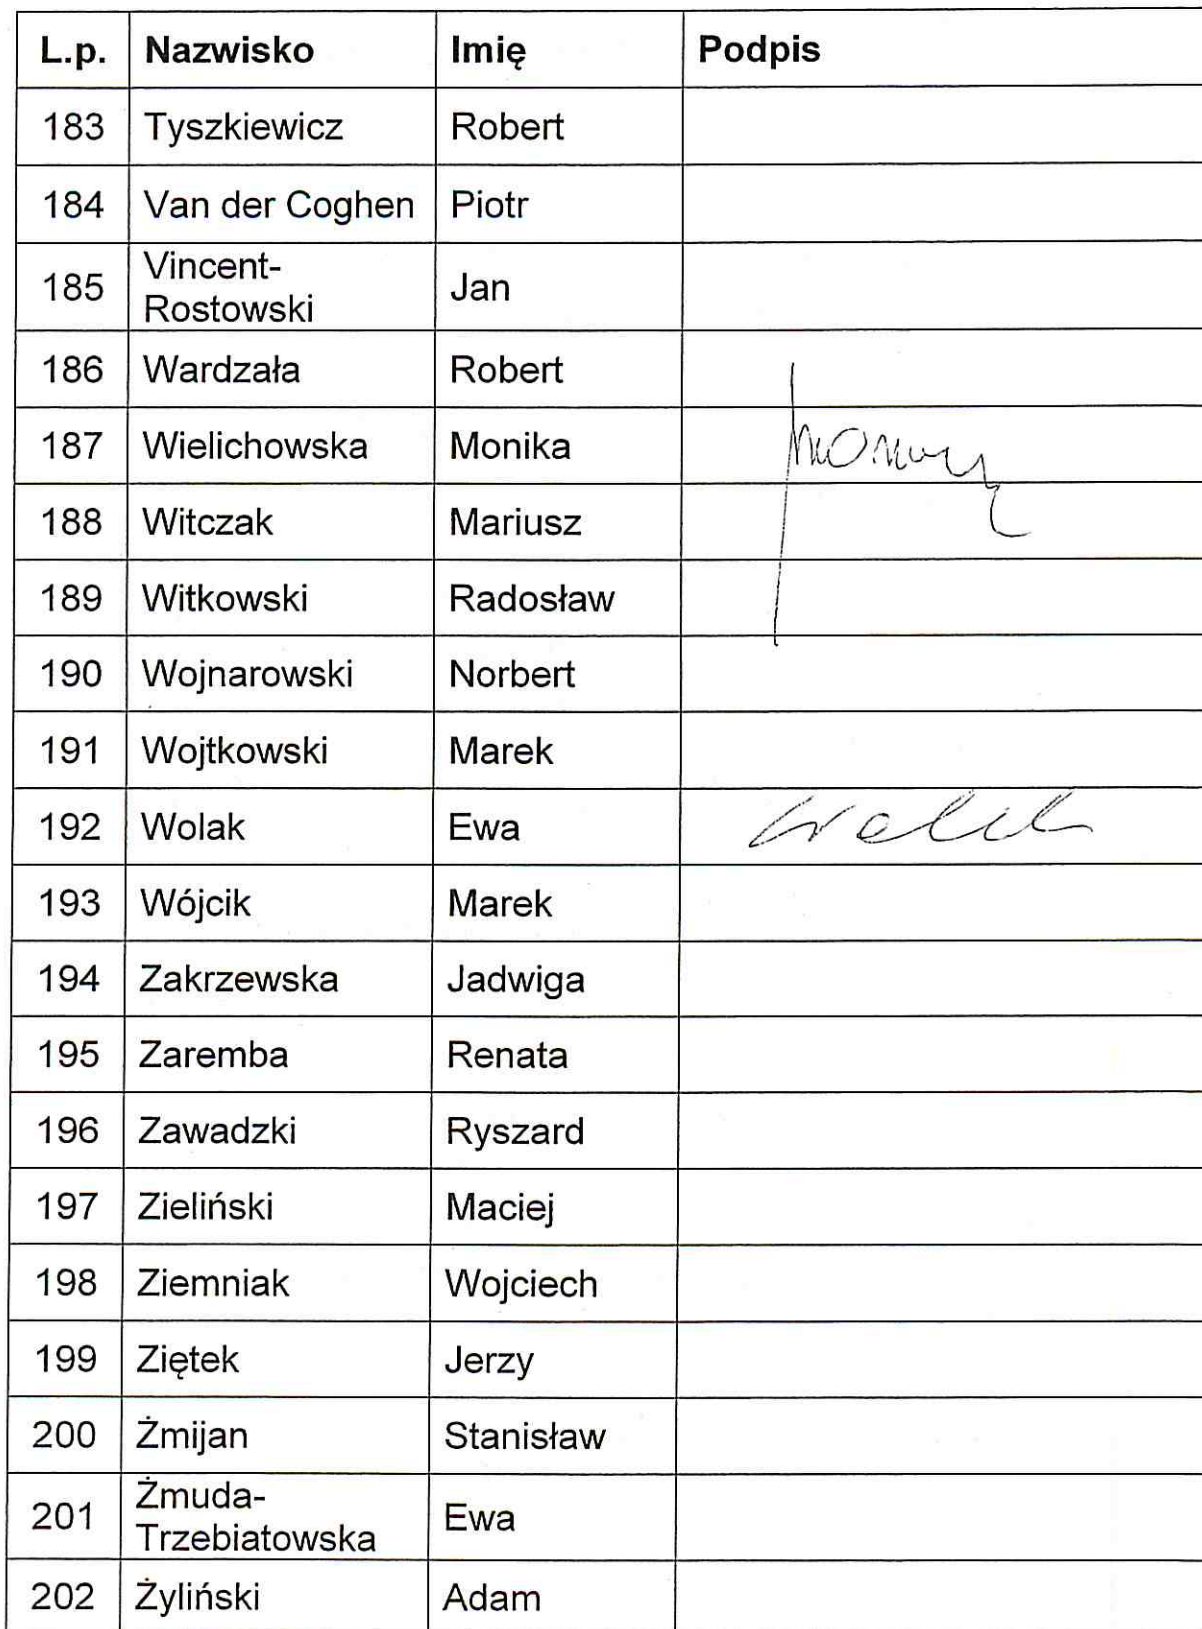 L.p. Nazwisko Imię Podpis
183 Tyszkiewicz Robert
184 Van der Coghen Piotr
185 Vincent-
Rostowski Jan
186 Wardzała Robert
187 Wielichowska Monika
188 Witczak Mariusz
189 Witkowski Radosław
190 Wojnarowski Norbert
191 Wojtkowski Marek
192 Wolak Ewa Wolak
193 Wójcik Marek
194 Zakrzewska Jadwiga
195 Zaremba Renata
196 Zawadzki Ryszard
197 Zieliński Maciej
198 Ziemniak Wojciech
199 Ziętek Jerzy
200 Żmijan Stanisław
201 Żmuda-
Trzebiatowska Ewa
202 Żyliński Adam